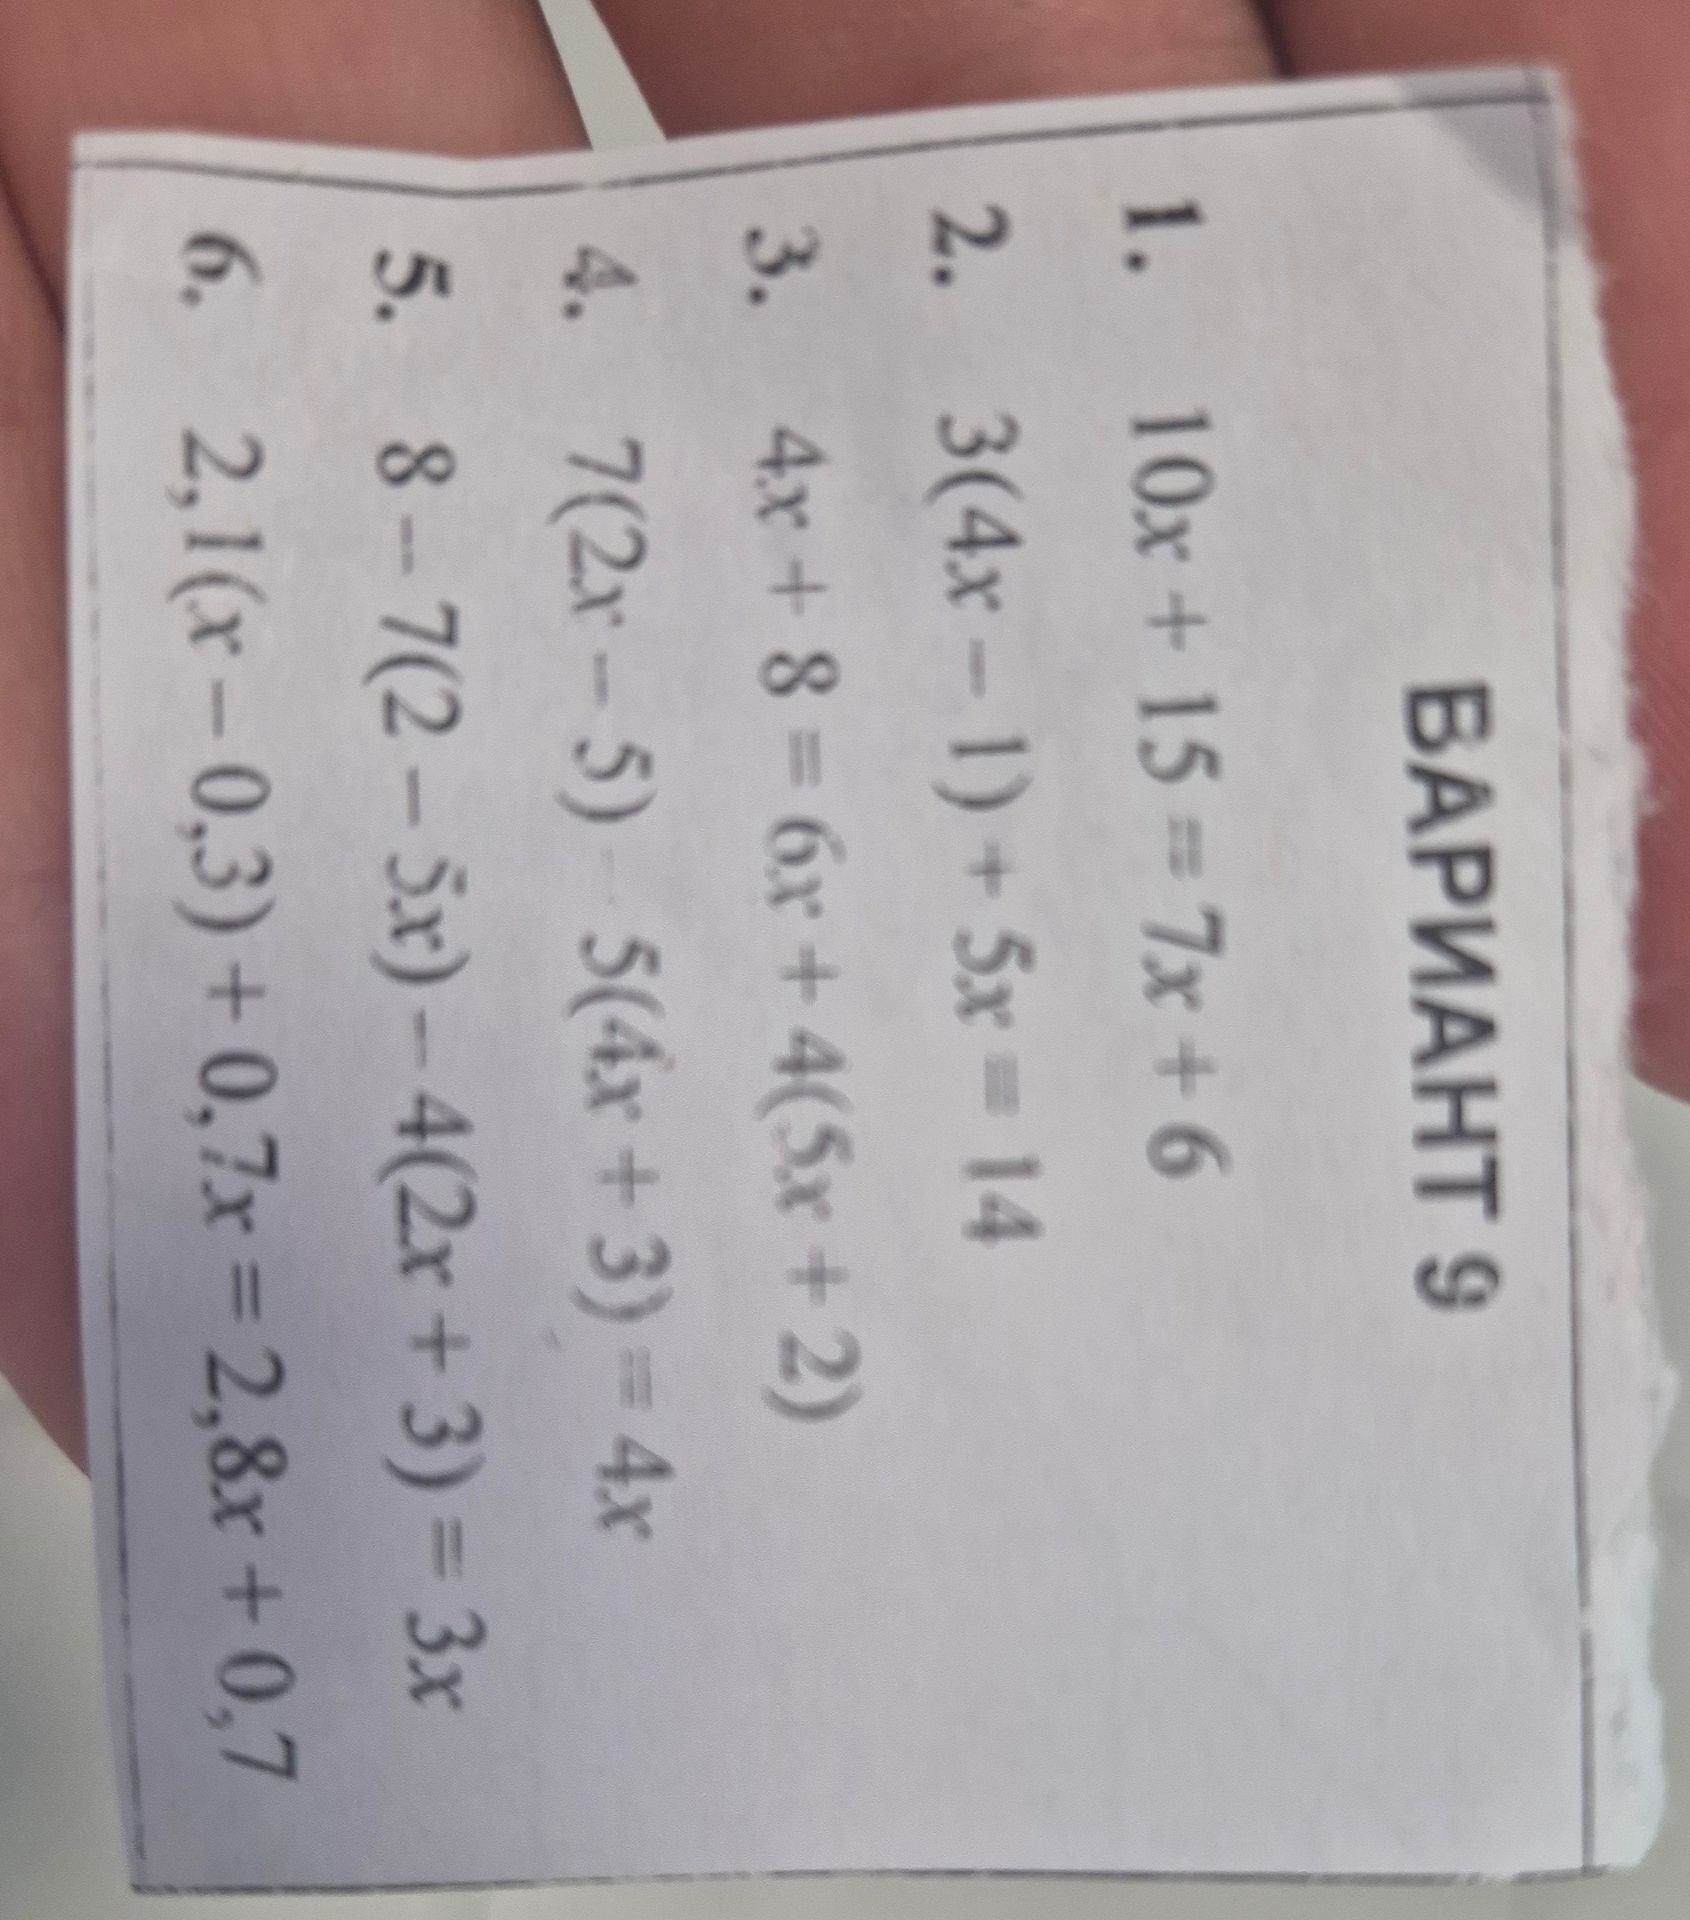 ВАРИАНТ 9
1. 10x + 15 = 7x + 6
2. 3(4x − 1) + 5x = 14
3. 4x + 8 = 6x + 4(5x + 2)
4. 7(2x − 5) − 5(4x + 3) = 4x
5. 8 − 7(2 − 5x) − 4(2x + 3) = 3x
6. 2,1(x − 0,3) + 0,7x = 2,8x + 0,7